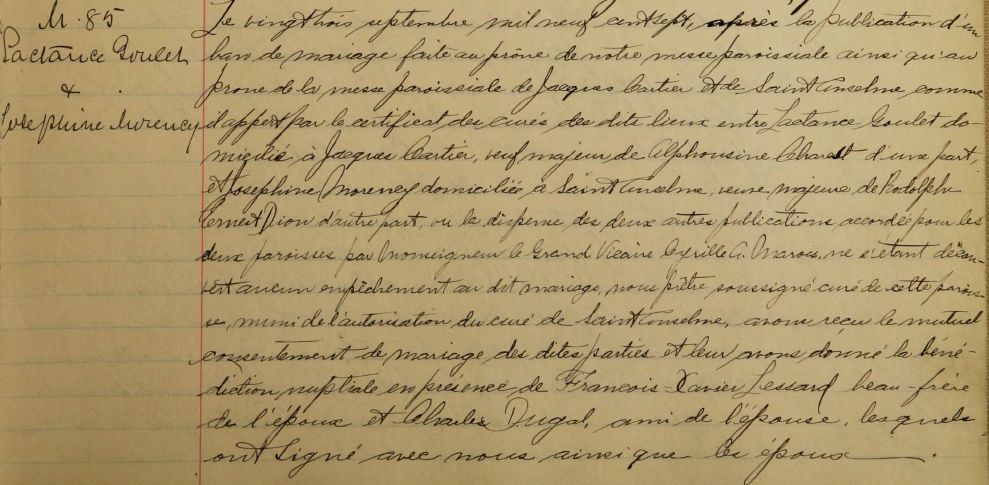 M. 85
Lactance Goulet
&
Josephine Morency
Le vingt trois septembre mil neuf cent sept, après la publication d'un
ban de mariage faite au prône de notre messe paroissiale ainsi qu'au
prone de la messe paroissiale de Jacques Cartier et de Saint Anselme comme
d'appert par le certificat des curés des dits lieux entre Lactance Goulet do-
micilié à Jacques Cartier, veuf majeur de Alphonsine Charest d'une part,
et Josephine Morency domiciliée à Saint Anselme, veuve majeure de Rodolph
Ernest Dion d'autre part, vu la dispense des deux autres publications accordée pour les
deux paroisses par Monseigneur le Grand Vicaire Cyrille A. Marois, ne s'étant décou-
vert aucun empêchement au dit mariage, nous prêtre soussigné curé de cette parois-
se, muni de l'autorisation du curé de Saint Anselme, avons reçu le mutuel
consentement de mariage des dites parties et leur avons donné la béné-
diction nuptiale en présence de Francois-Xavier Lessard beau-frère
de l'époux et Charles Dugal, ami de l'épouse, lesquels
ont signé avec nous ainsi que les époux.